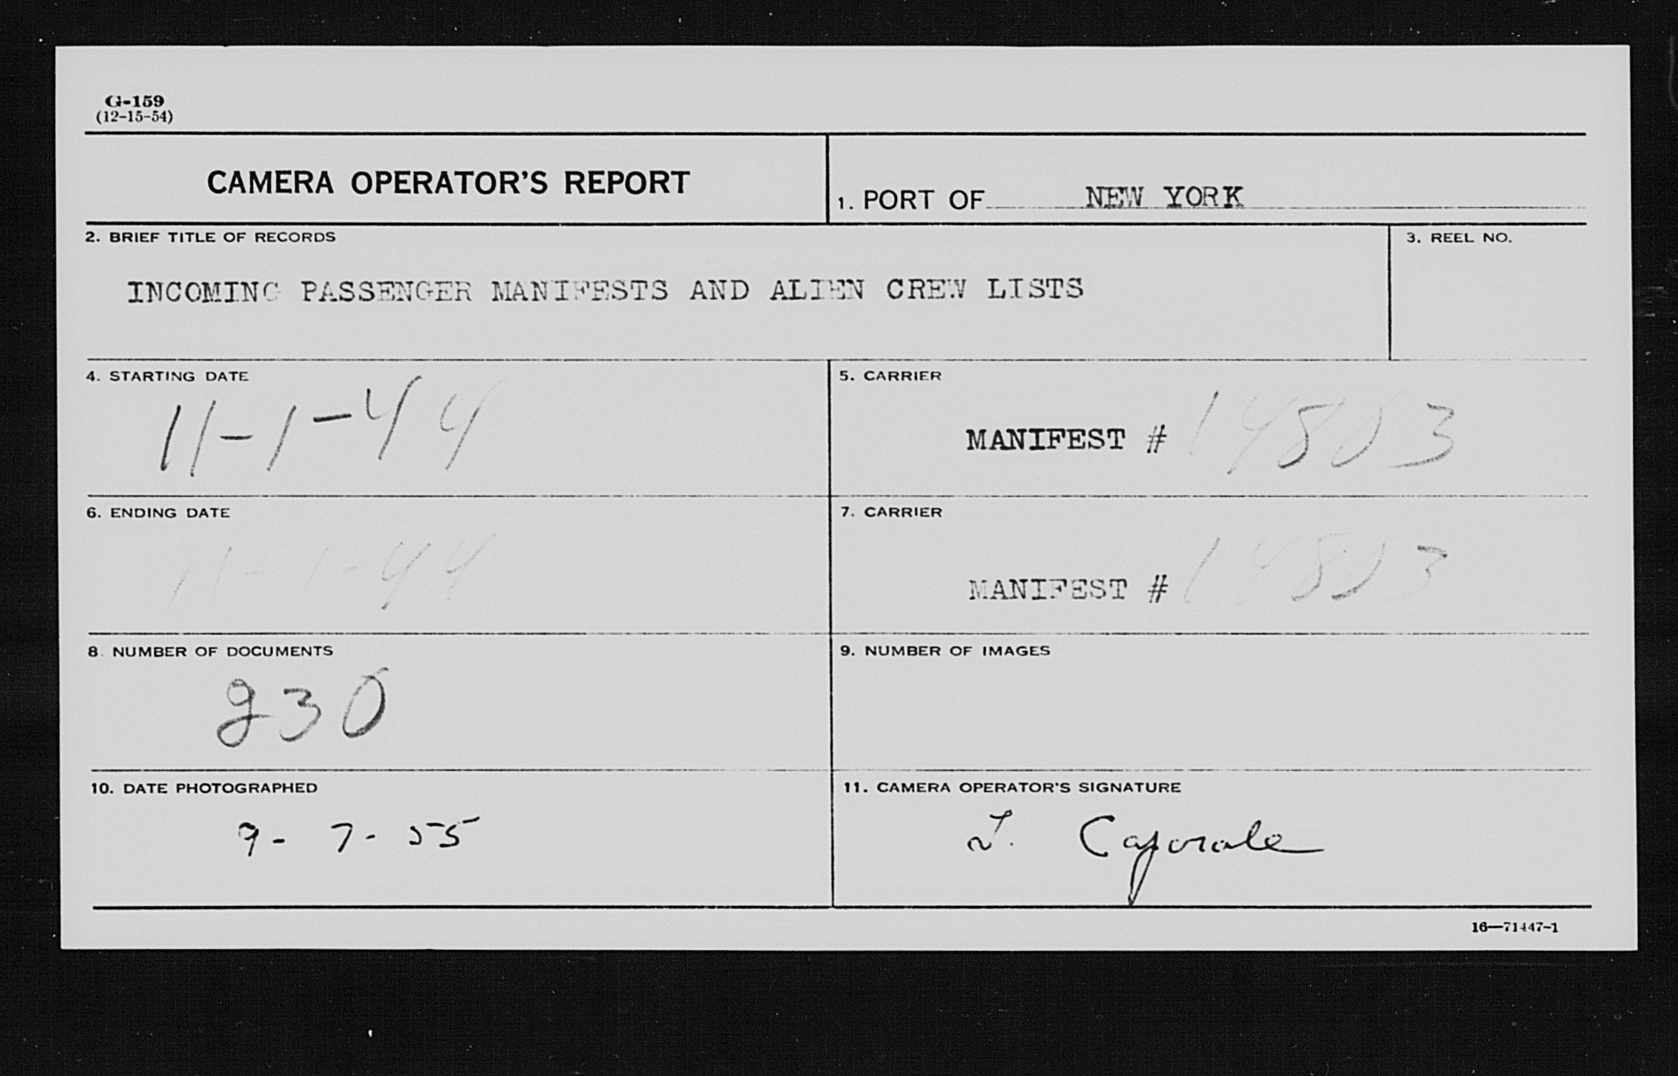 G-159
(12-15-54)
CAMERA OPERATOR'S REPORT
1. PORT OF NEW YORK
2. BRIEF TITLE OF RECORDS
3. REEL NO.
INCOMING PASSENGER MANIFESTS AND ALIEN CREW LISTS
4. STARTING DATE
5. CARRIER
11-1-44
MANIFEST #
6. ENDING DATE
7. CARRIER
11-1-44
MANIFEST #
8. NUMBER OF DOCUMENTS
9. NUMBER OF IMAGES
230
10. DATE PHOTOGRAPHED
11. CAMERA OPERATOR'S SIGNATURE
9-7-55
Caporale
16—71447-1